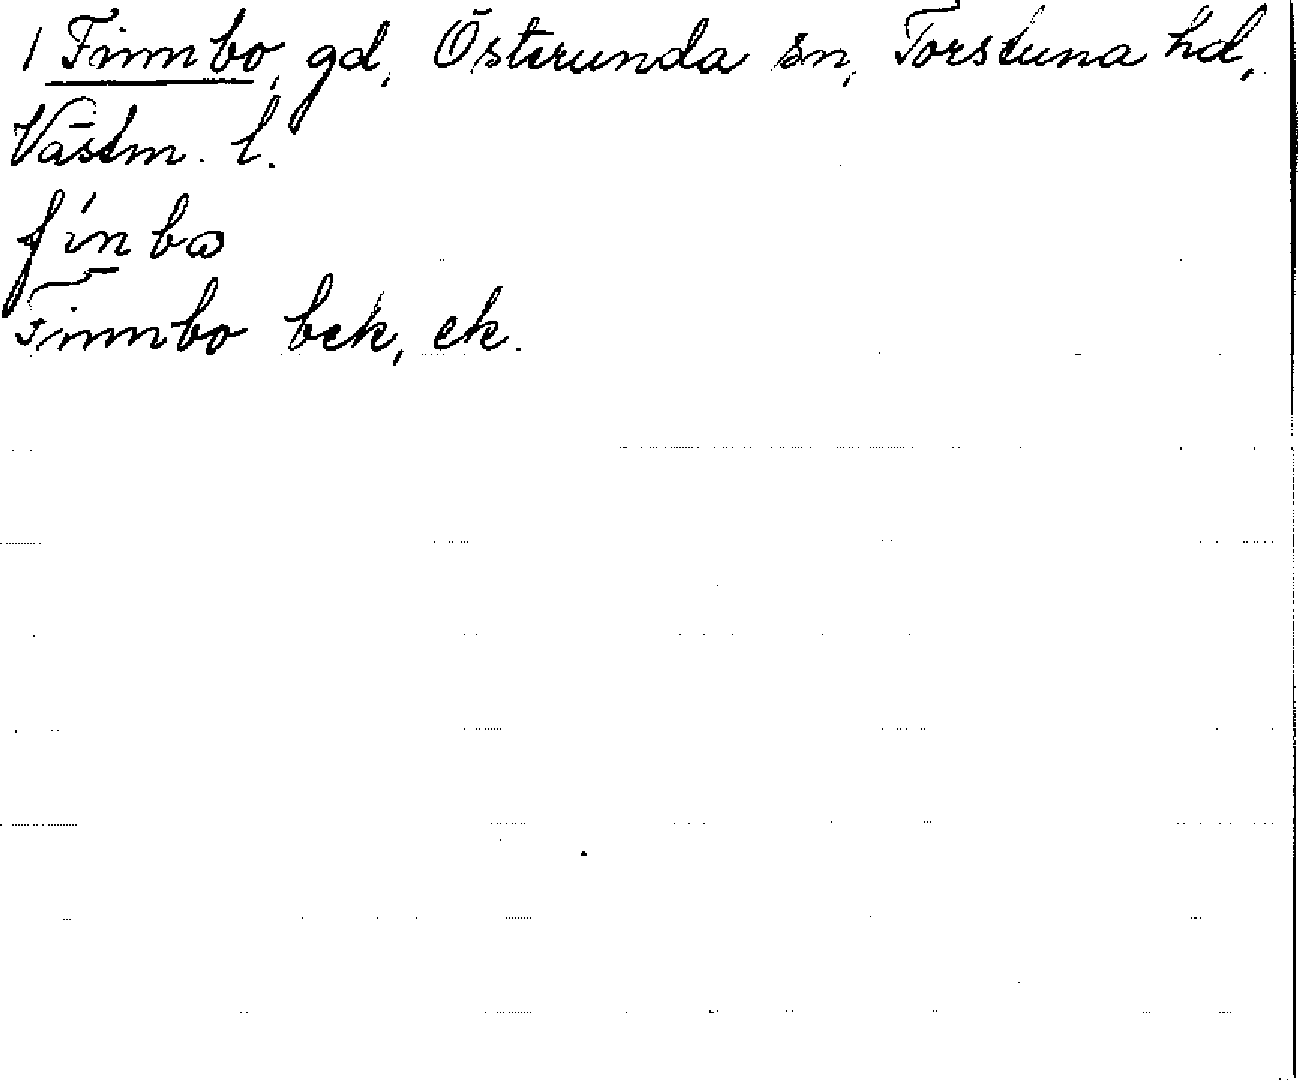 1 Finnbo, gd, Österunda sn, Torstuna hd,
Västm. l.
fínbω
Finnbo bek, ek.